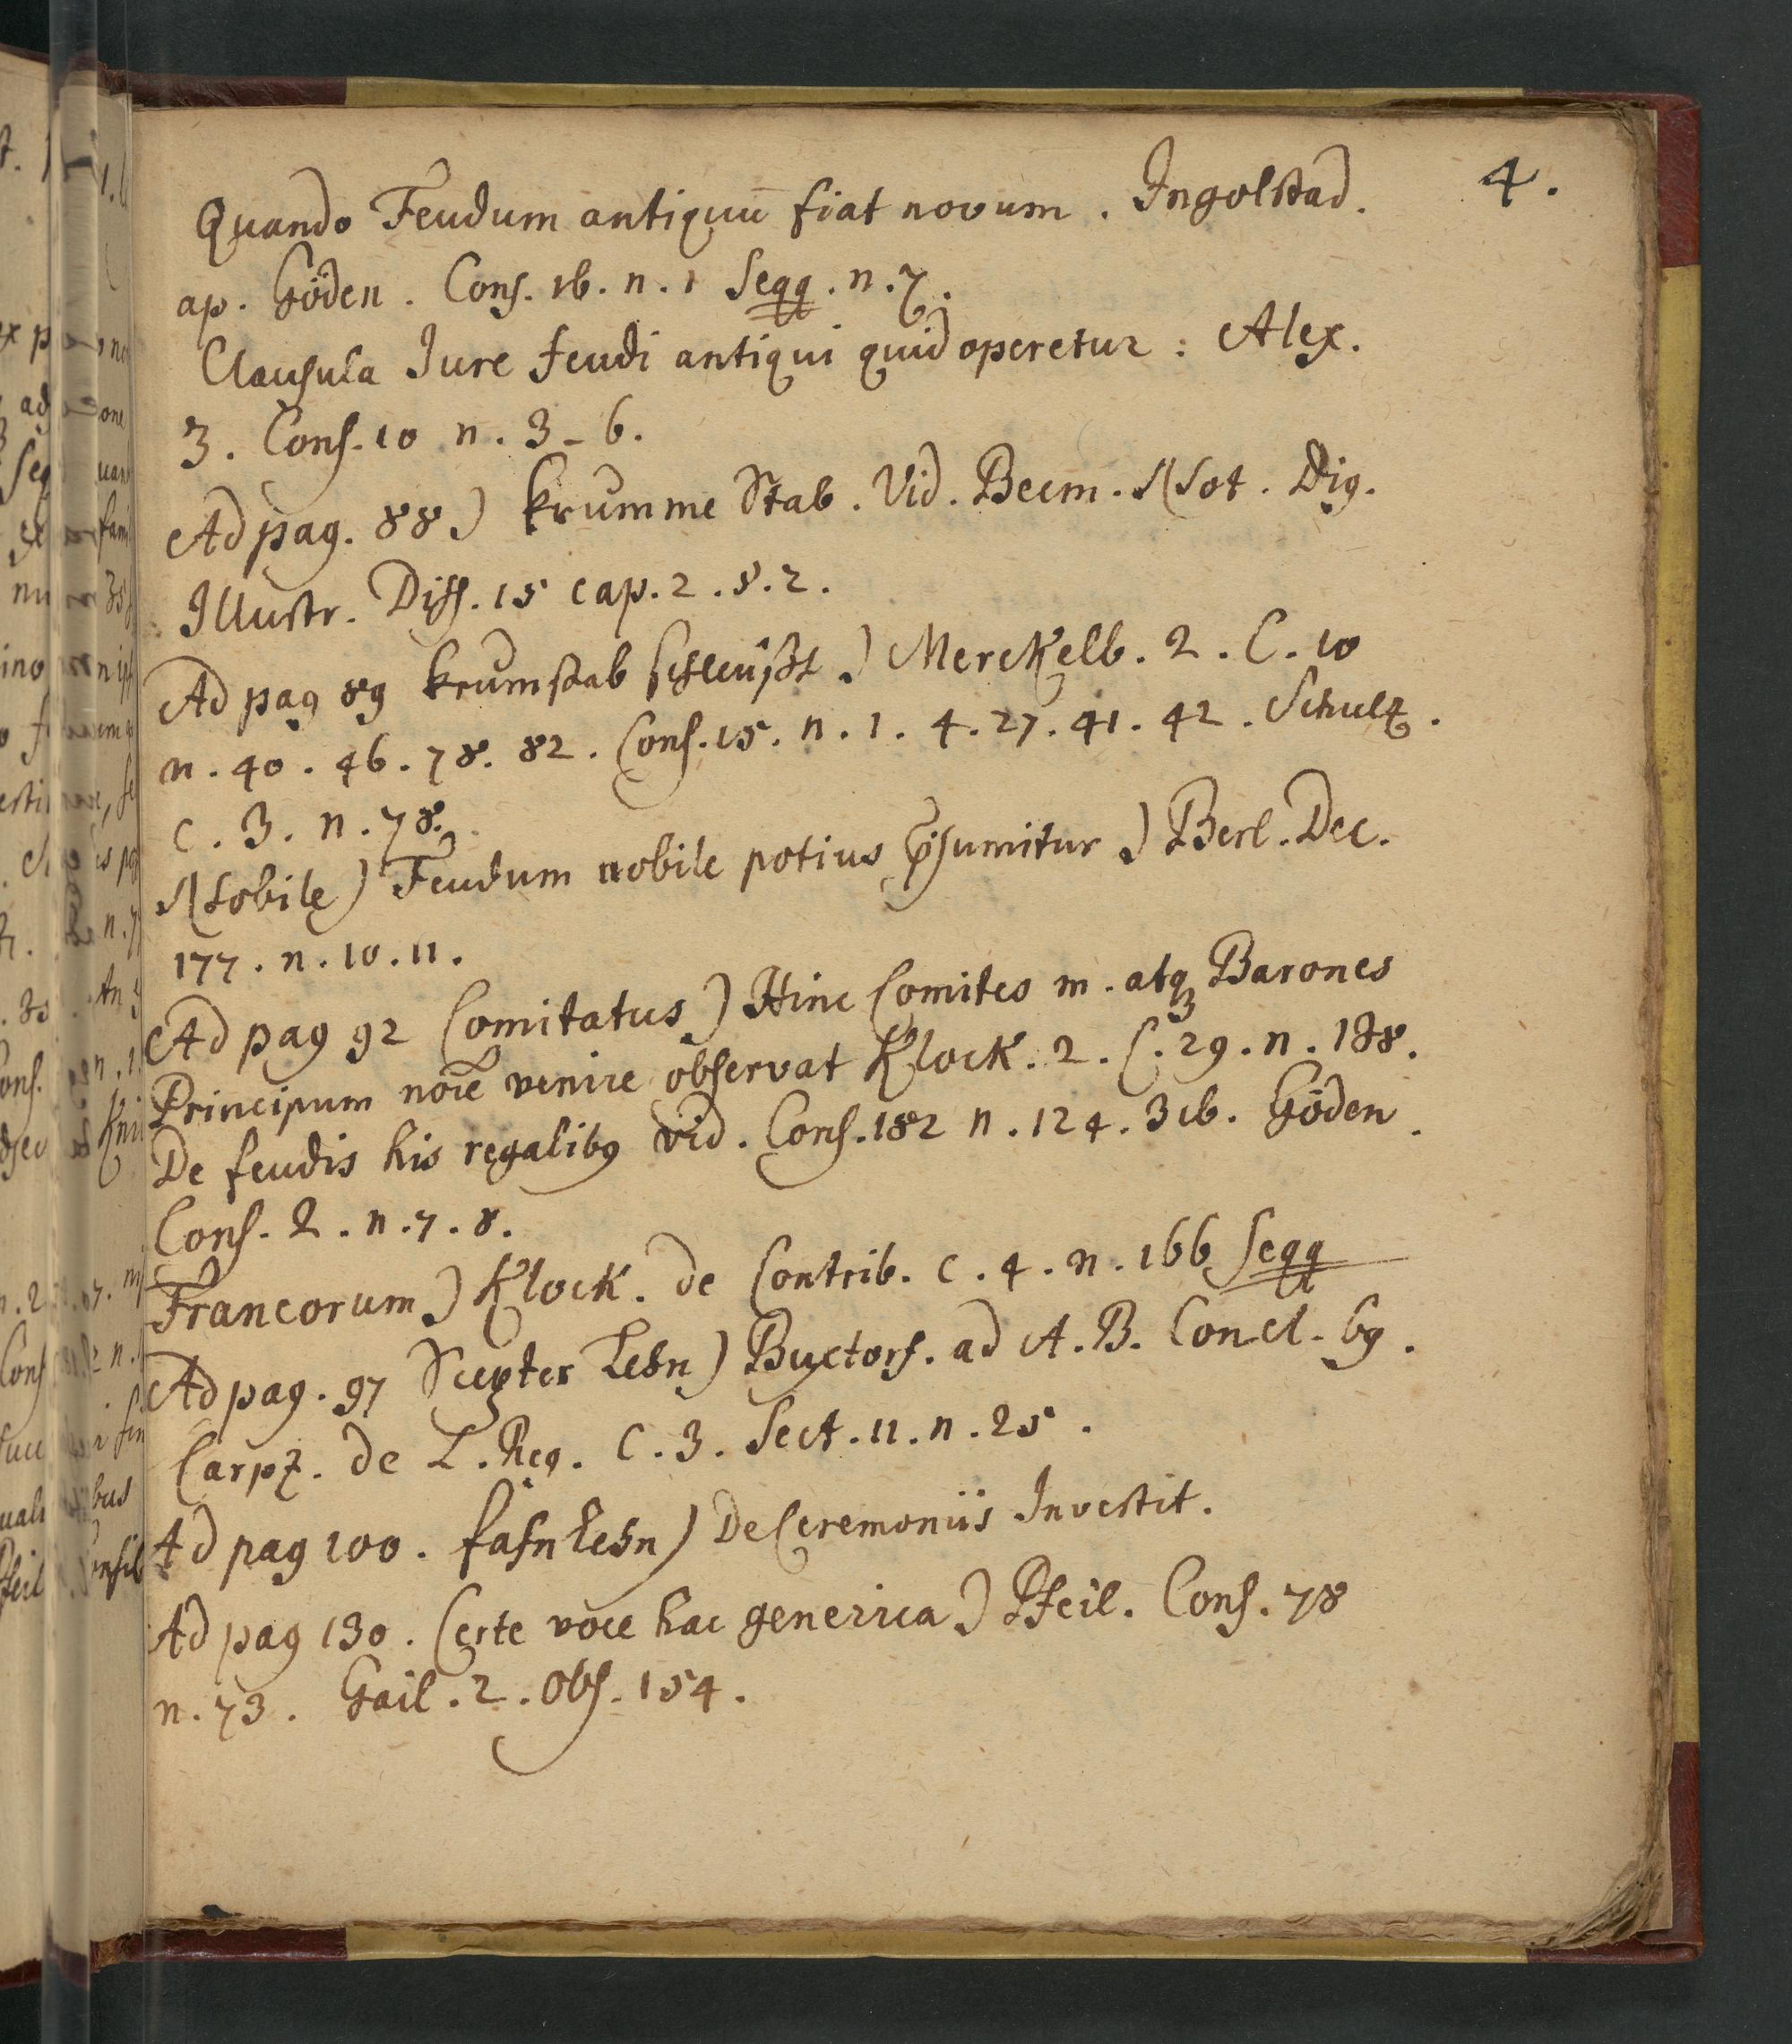 4.
Quando Feudum antiquū fiat novum. Ingolstad.
ap. Göden. Cons. 16. n. 1 seqq. n. 7.
Clausula Jure feudi antiqui quid operetur: Alex.
3. Cons. 10 n. 3-6.
Ad pag. 88) krumme Stab. Vid. Becm. Not. Dig.
Illustr. Diss. 15 cap. 2. §. 2.
Ad pag 89 krumstab schleüßt) Merckelb. 2. C. 10
n. 40. 46. 78. 82. Cons. 15. n. 1. 4. 27. 41. 42. Schultz.
c. 3. n. 78.
Nobile) Feudum nobile potius p̃sumitur) Berl. Dec.
177. n. 10. 11.
Ad pag 92 Comitatus) Hinc Comites m. atq3 Barones
Principum nōie venire observat Klock. 2. C. 29. n. 188.
De feudis his regalib9 vid. Cons. 182 n. 124. 316. Göden.
Cons. 2. n. 7. 8.
Francorum) Klock. de Contrib. c. 4. n. 166 seqq
Ad pag. 97 Scepter Lehn) Buxtorf. ad A. B. Concl. 69.
Carpz. de L. Reg. C. 3. Sect. 11. n. 25.
Ad pag 100. fahn Lehn) De Ceremoniis Investit.
Ad pag 130. Certe voce hac generica) Pfeil. Cons. 78
n. 73. Gail. 2. Obs. 154.